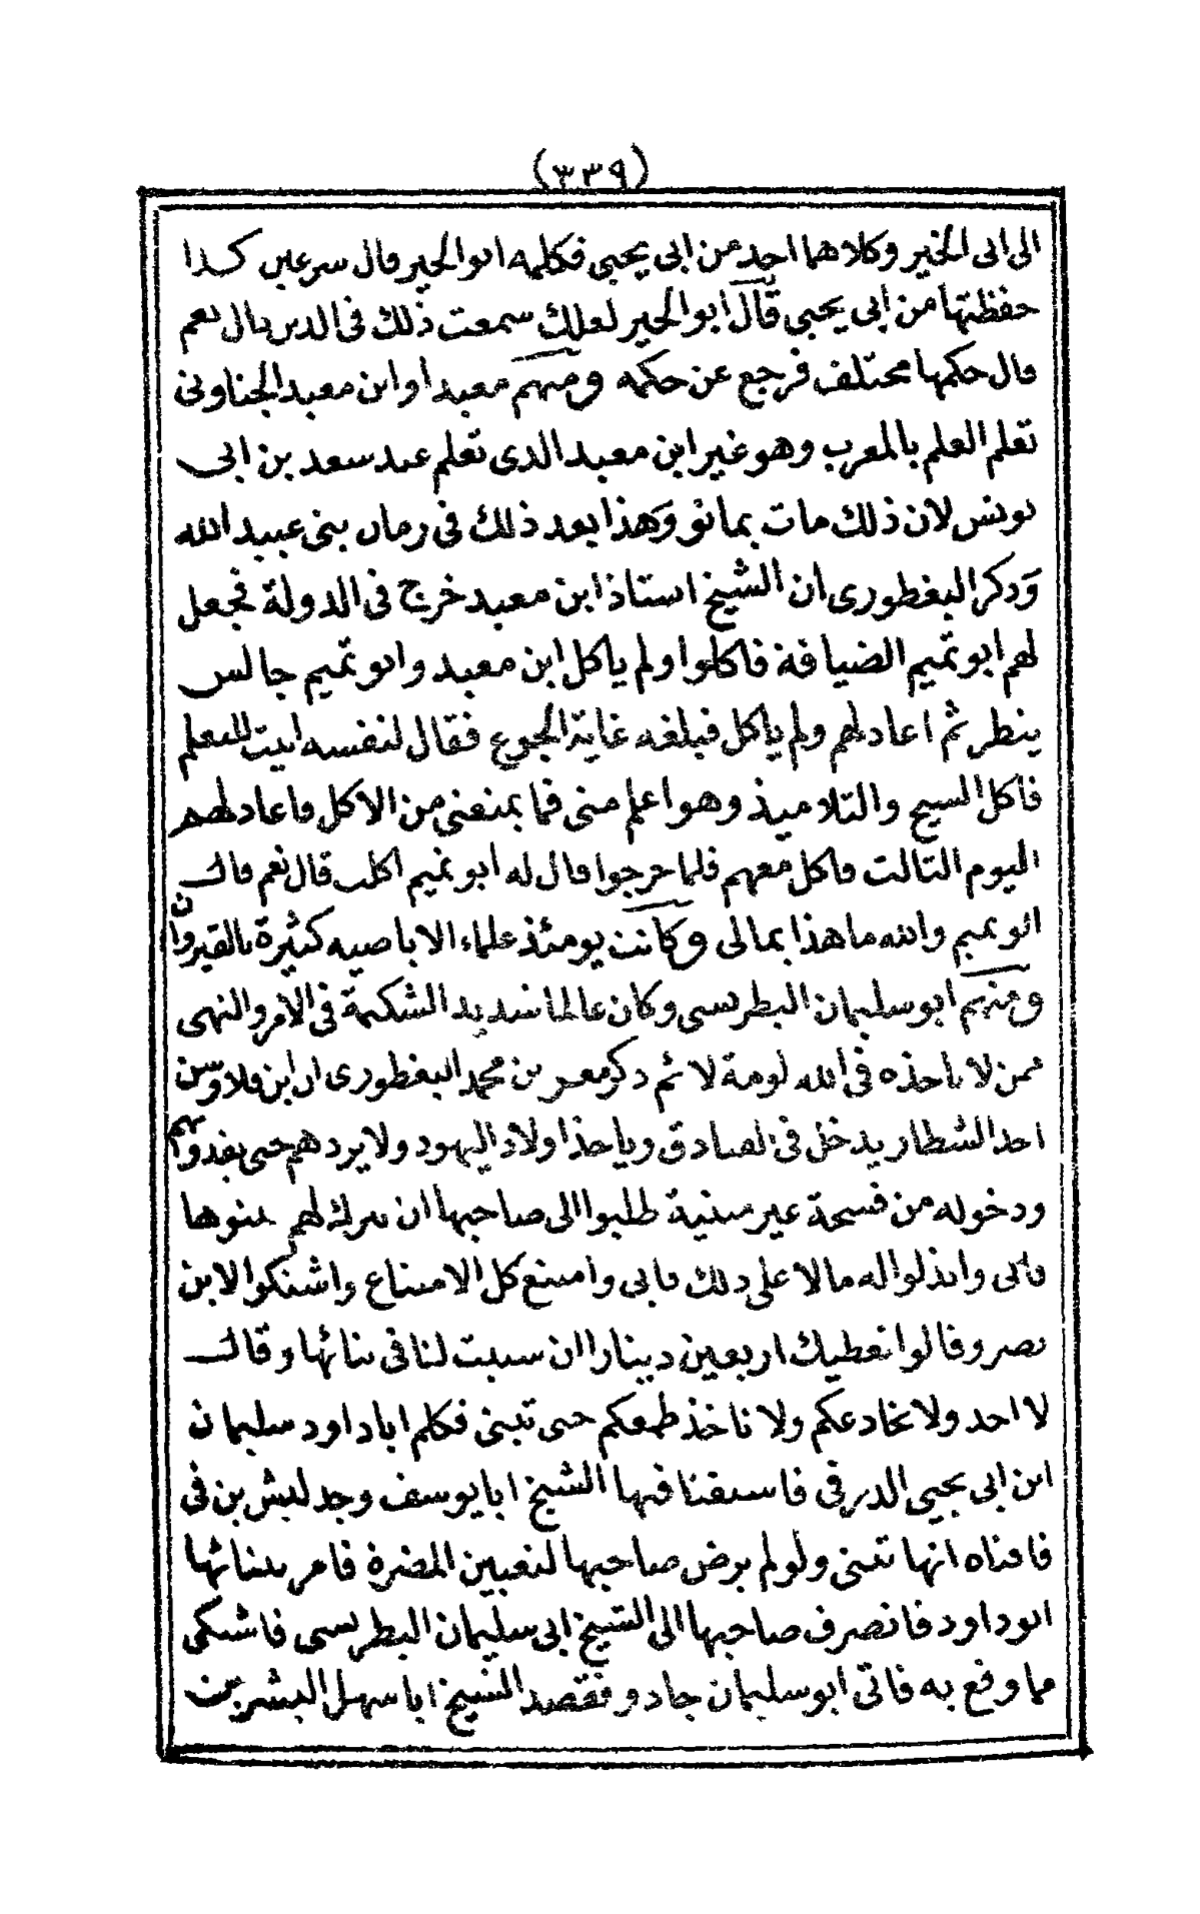 (٣٣٩)
الى ابى الخير وكلاهما احد من ابى يحيى فكلمه ابو الخير قال سرعين كذا
حفظتها من ابى يحيى قال ابو الخير لعلك سمعت ذلك فى الدين قال نعم
قال حكمها مختلف فرجع عن حكمه ومنهم معبد او ابن معبد الجناونى
تعلم العلم بالمغرب وهو غير ابن معبد الذى تعلم عند سعد بن ابى
يونس لان ذلك مات بمانو وهذا بعد ذلك فى زمان بنى عبيد الله
وذكر البغطورى ان الشيخ استاذ ابن معبد خرج فى الدولة فجعل
لهم ابو تميم الضيافة فاكلوا ولم ياكل ابن معبد وابو تميم جالس
ينظر ثم اعاد لهم ولم ياكل فبلغه غاية الجوع فقال لنفسه ابيت للمعلم
فاكل الشيخ والتلاميذ وهو اعلم منى فما يمنعنى من الاكل فاعاد لهم
اليوم الثالث فاكل معهم فلما خرجوا قال له ابو تميم اكلت قال نعم قال
ابو تميم والله ما هذا بمالى وكانت يومئذ علماء الاباضيه كثيرة بالقيروان
ومنهم ابو سليمان البطرسى وكان عالما شديد الشكيمة فى الامر والنهى
ممن لا تاخذه فى الله لومة لائم ذكر معر بن محمد البغطورى ان ابن فلاوسن
احد الشطار يدخل فى الفنادق وياخذ اولاد اليهود ولا يردهم حتى يفدوهم
ودخوله من فسحة غير مبنية طلبوا الى صاحبها ان يترك لهم يبنوها
فابى وابذلوا له مالا على ذلك فابى وامتنع كل الامتناع واشتكوا لابن
نصر وقالوا نعطيك اربعين دينارا ان سببت لنا فى بنائها وقال
لا احد ولا نخادعكم ولا ناخذ طمعكم حتى تبنى فكلم ابا داود سليمان
ابن ابى يحيى الدرفى فاستفتا فيها الشيخ ابا يوسف وجدليش بن فى
فافتاه انها تبنى ولو لم يرض صاحبها لتعيين المضرة فامر ببنائها
ابو داود فانصرف صاحبها الى الشيخ ابى سليمان البطرسى فاشتكى
مما وقع به فاتى ابو سليمان جادو فقصد الشيخ ابا سهل البشر بن